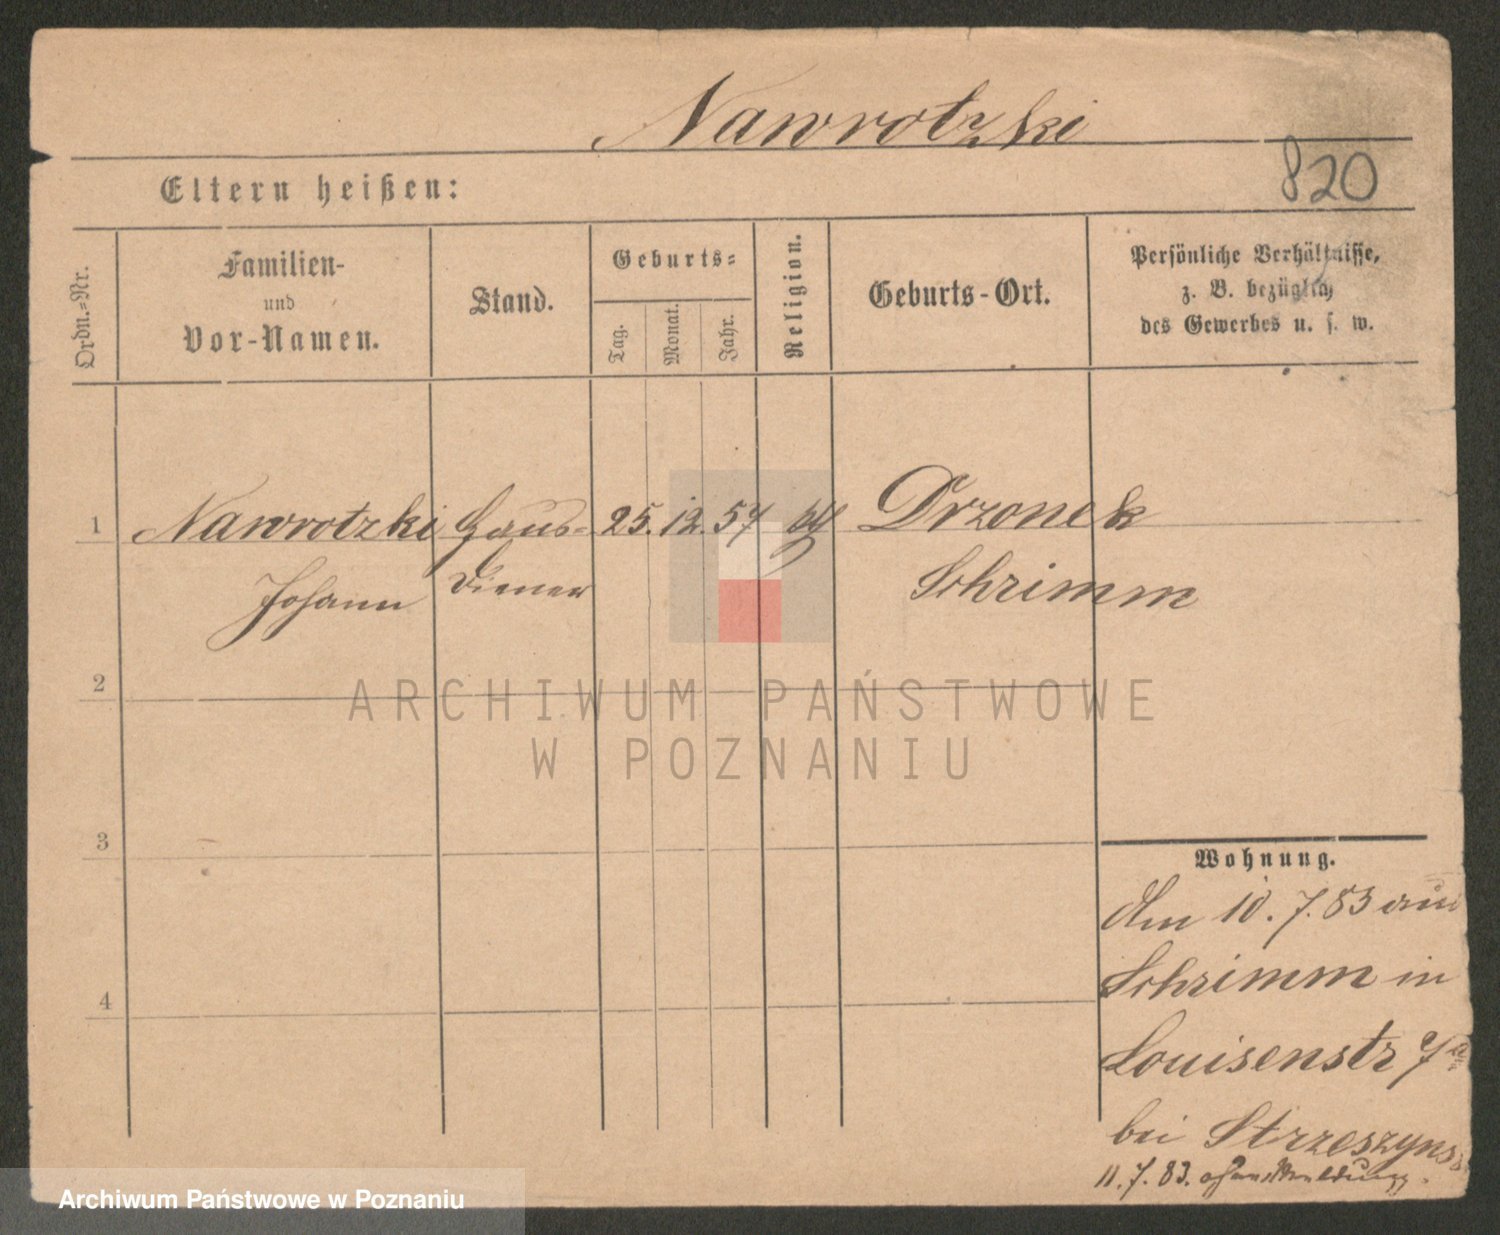 Nawrotzki
820
Eltern heißen:
Ordn.-Nr.
Familien-
und
Vor-Namen.
Stand.
Geburts-
Tag.
Monat.
Jahr.
Religion.
Geburts-Ort.
Persönliche Verhältnisse,
z. B. bezüglich
des Gewerbes u. s. w.
1 Nawrotzki Haus- 25. 12. 57 Drzonek
Johann Diener Schrimm
2
ARCHIWUM PAŃSTWOWE
W POZNANIU
3
4
Wohnung.
Am 10. 7. 83 aus
Schrimm in
Louisenstr 7a
bei Strzeszyns
11. 7. 83.
Archiwum Państwowe w Poznaniu